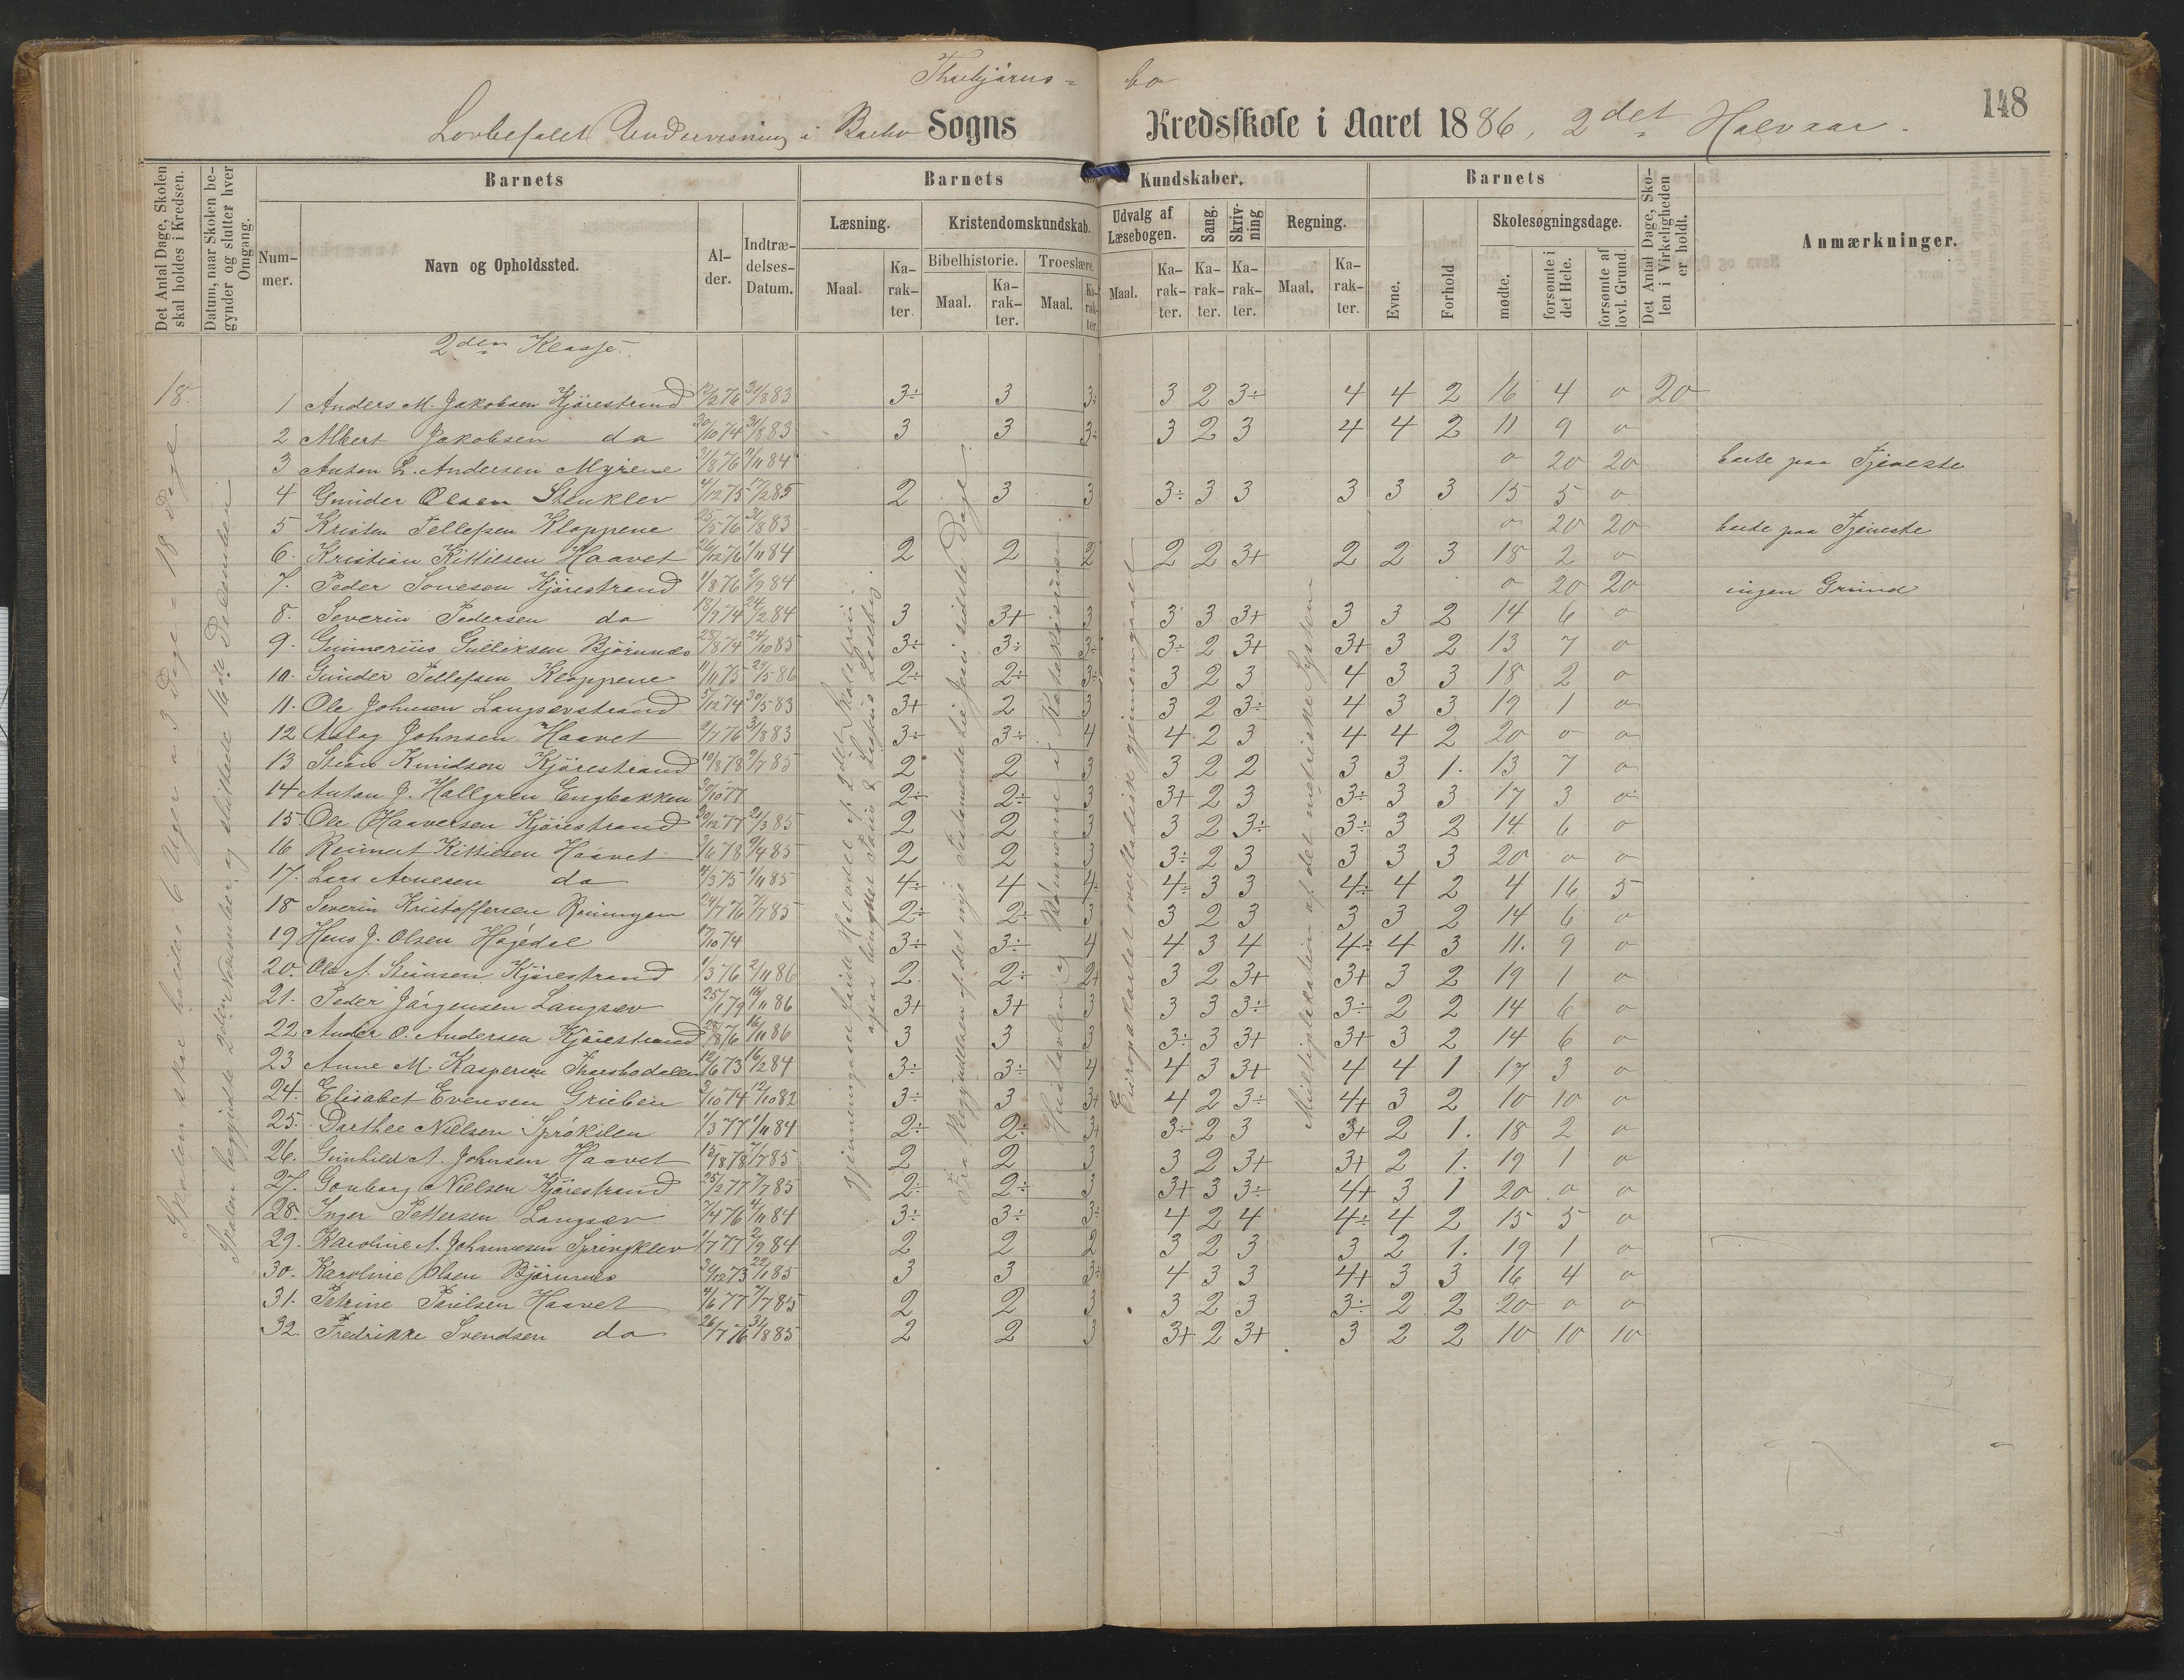 148
Lovbefalet Undervisning i Sogns Kredsskole i Aaret 1886, 2det Halvaar.
Det Antal Dage, Skolen skal holdes i Kredsen.
Datum, naar Skolen begynder og slutter hver Omgang.
Barnets
Nummer.
Navn og Opholdssted.
Alder.
Indtrædelses-Datum.
Barnets Kundskaber.
Læsning.
Maal.
Karakter.
Kristendomskundskab.
Bibelhistorie.
Maal.
Karakter.
Troeslære.
Maal.
Karakter.
Udvalg af Læsebogen.
Maal.
Karakter.
Sang.
Karakter.
Skrivning
Karakter.
Regning.
Maal.
Karakter.
Barnets
Evne.
Forhold
Skolesøgningsdage.
mødte.
forsømte i det Hele.
forsømte af lovl. Grund.
Det Antal Dage, Skolen i Virkeligheden er holdt.
Anmærkninger.
2den Klasse.
18.
1 Anders M. Jakobsen Kjörestrand 12/2 76 31/8 83 3÷ 3 3÷ 3 2 3÷ 4 4 2 16 4 0 20
2 Albert Jakobsen do 30/10 74 31/8 83 3 3 3÷ 3 2 3 4 4 2 11 9 0
3 Anton L. Andersen Myrene 31/8 76 1/11 84 0 20 20 borte paa Tjeneste
4 Gunder Olsen Stenklev 4/12 75 17/2 85 2 3 3 3÷ 3 3 3 3 3 15 5 0
5 Kristen Tellefsen Kloppene 25/5 76 31/8 83 0 20 20 borte paa Tjeneste
6. Kristian Kittilsen Haavet 26/12 76 1/11 84 2 2 2 2 2 3+ 2 2 3 18 2 0
7. Peder Tonesen Kjörestrand 1/8 76 2/9 84 0 20 20 ingen Grund
8. Severin Pedersen do 18/9 74 24/2 84 3 3+ 3 3 3 3+ 3 3 2 14 6 0
9. Gunnerius Gulliksen Björnnes 28/8 74 24/10 85 3÷ 3÷ 3÷ 3÷ 2 3+ 3+ 3 2 13 7 0
10. Gunder Tellefsen Kloppene 11/11 75 25/5 86 2÷ 2÷ 3÷ 3 2 3 4 3 3 18 2 0
11. Ole Johnsen Langsævstrand 5/12 74 30/5 83 3+ 2 3 3 2 3÷ 4 3 3 19 1 0
12 Aslag Johnsen Haavet 9/7 76 31/8 83 3÷ 3÷ 4 4 2 3 4 4 2 20 0 0
13 Stian Knudsen Kjörestrand 10/8 78 9/7 85 2 2 3 3 2 2 3 3 1. 13 7 0
14 Anton J. Hallgren Engbakken 30/10 77 2÷ 2÷ 3 3+ 2 3 3÷ 3 3 17 3 0
15. Ole Haaversen Kjörestrand 30/12 77 21/3 85 2 2 3 3 2 3÷ 3÷ 3 2 14 6 0
16 Reinert Kittilsen Haavet 3/6 78 9/4 85 2 2 3 3÷ 2 3 3 3 3 20 0 0
17. Lars Arnesen do 4/3 75 1/11 85 4÷ 4 4÷ 4÷ 3 3 4÷ 4 2 4 16 5
18 Severin Kristoffersen Röningen 24/7 76 7/7 85 2÷ 2÷ 3 3 2 3 3 3 2 14 6 0
19 Hans J. Olsen Högedal 17/10 74 3÷ 3÷ 4 4 3 4 4÷ 4 3 11. 9 0
20. Ole A. Stiansen Kjörestrand 1/3 76 2/11 86 2 2÷ 2+ 3 2 3+ 3+ 3 2 19 1 0
21. Peder Jörgensen Langsæv 25/1 79 16/11 86 3+ 3+ 3 3 3 3÷ 3÷ 2 2 14 6 0
22 Ander O. Andersen Kjörestrand 28/8 76 16/11 86 3 3 3 3÷ 3 3+ 3+ 3 2 14 6 0
23 Anne M. Kaspersen 12/6 73 16/2 84 3÷ 3÷ 4 4 3 3+ 4 4 1 17 3 0
24. Elisabet Evensen Gruben 3/10 74 12/10 82 3÷ 3 3+ 4 2 3÷ 4+ 3 2 10 10 0
25. Dorthee Nielsen Sprökilen 1/3 77 1/11 84 2÷ 2÷ 3+ 3÷ 2 3 3+ 2 1. 18 2 0
26. Gunhild A. Johnsen Haavet 15/8 78 7/7 85 2 2 3 3 2 3+ 3+ 2 1. 19 1 0
27. Gonborg Nielsen Kjörestrand 25/2 77 7/7 85 2÷ 2÷ 3 3+ 3 3÷ 4+ 3 1 20 0 0
28. Inger Pettersen Langsæv 3/4 76 4/11 84 3÷ 3÷ 3÷ 4 2 4 4÷ 4 2 15 5 0
29. Karoline A. Johannesen Springklev 1/7 77 2/9 84 2 2 2 3 2 3 3 2 1. 19 1 0
30. Karoline Olsen Björnnes 31/12 73 22/1 85 3 3 3÷ 4 3 3 4+ 3 3 16 4 0
31. Petrine Poulsen Haavet 4/6 77 7/7 85 2 2 3 3 2 3 3÷ 2 2 20 0 0
32. Fredrikke Svendsen do 26/7 76 31/8 85 2 2 3 3+ 2 3+ 3 2 2 10 10 10
Skolen skal holdes 6 Uger a 3 Dage = 18 Dage
Skolen begyndte 2den November og sluttede 16de December
Fra Begyndelsen af det nye Testamente til Jesu sidste Dage.
Europakartet gjennemgaaet
Multiplikation af det metriske System